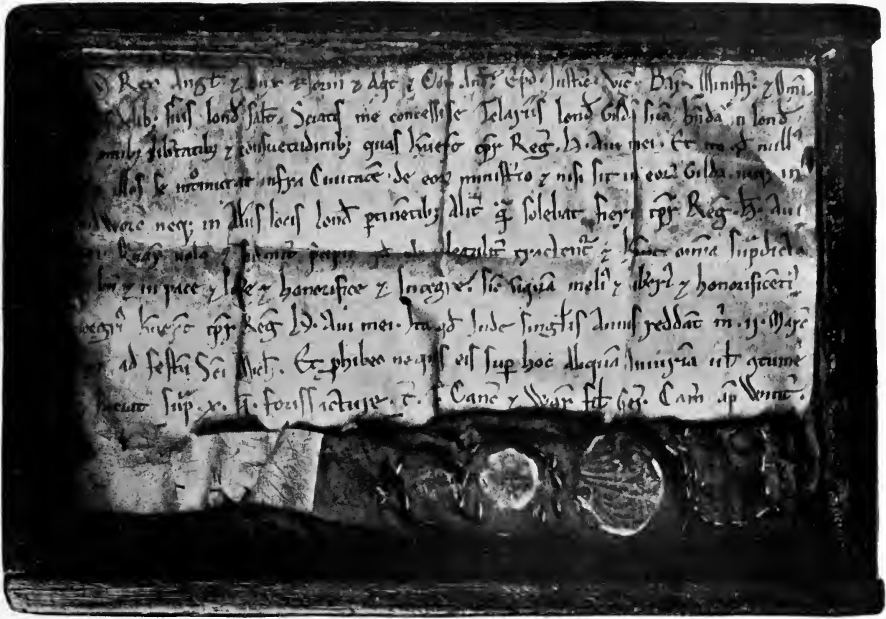 Rex Angł ⁊ Dux Norm̄ ⁊ Aq̄t ⁊ Com̄ And̄ Ep̄is Justic̄ Vic̄ Bar̄ Ministr̄ ⁊ Om̄ib
fidlib suis lond̄ Sał̄t. Sciatis me concessisse Telariis lond̄ Gild̄ suā hn̄da in lond̄
om̄ibꝫ lib̄tatibꝫ ⁊ consuetudinibꝫ quas hūer̄t tp̄r Reg̃ .H. Aui mei. Et ita qd̄ null
illos se intmittat infra Ciuitatē de eoꝝ ministrio ⁊ nisi sit in eoꝝ Gilda. neqꝫ in
Sudwerc neqꝫ in Aliis locis lond̄ ꝑtinētibꝫ Alit̃ q̃ solebat fieri tp̄r Reg̃ .H. Aui
mei. Quar̃ uolo ⁊ firmit̃ p̄cipio qd̄ legalit̃ tractent̃ ⁊ om̄ia sup̃dicta
bn̄ ⁊ in pace ⁊ libe ⁊ honorifice ⁊ Integre. Sic̄ uiq̃ua meli ⁊ libi ⁊ honorificēti
⁊ integri hūer̄t tp̄r Reg̃ .H. Aui mei. Ita qd̄ Inde singłis Annis reddāt m̄ .ii. Marc̄
ad festū Sc̄i Mich̄. Et ꝓhibeo ne quis eis sup hoc Aliquā Iniuriā uł̄ ɔtumel
faciat sup̃ .x. ł̄. forisfacture. T̄. T Canc̄ ⁊ War̄ fił̄ Ger̄. Cam̄ ap̄ Wint̃.